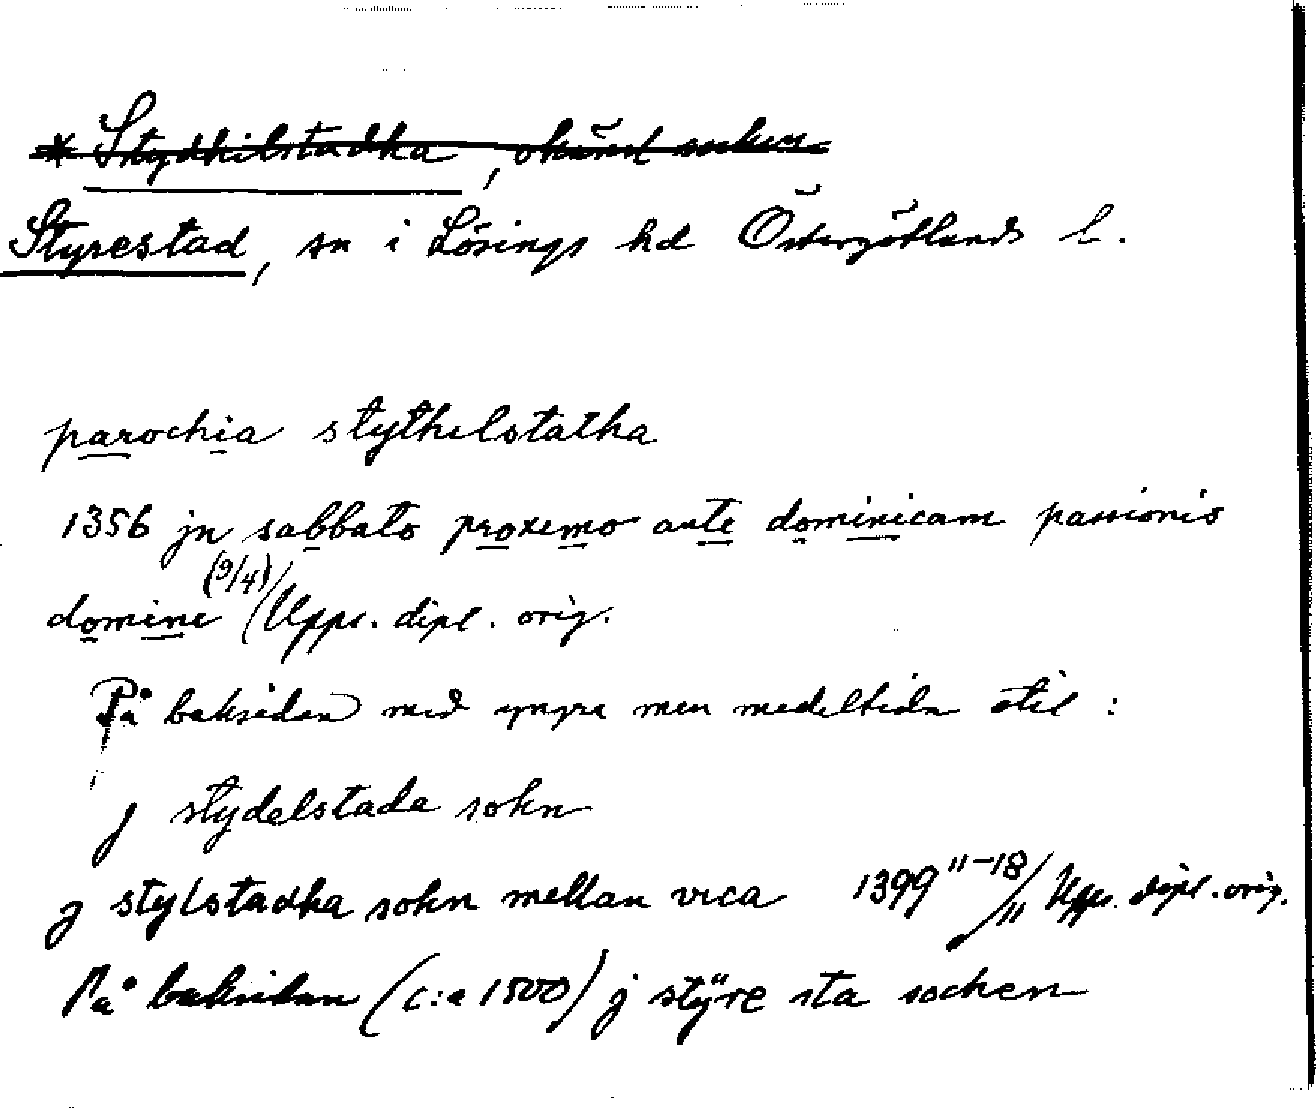 * Stydhilstadha, okänd socken
Styrestad, sn i Lösings hd Östergötlands l.
parochia stythelstatha
1356 jn sabbato proxemo ante dominicam passionis
domini (9/4) / Upps. dipl. orig.
På baksidan med yngre men medeltida stil :
j stydelstada sokn
j stylstadha sokn mellan vica 1399 11–18/11 Upps. dipl. orig.
På baksidan (c:a 1500) j stÿre sta sochen